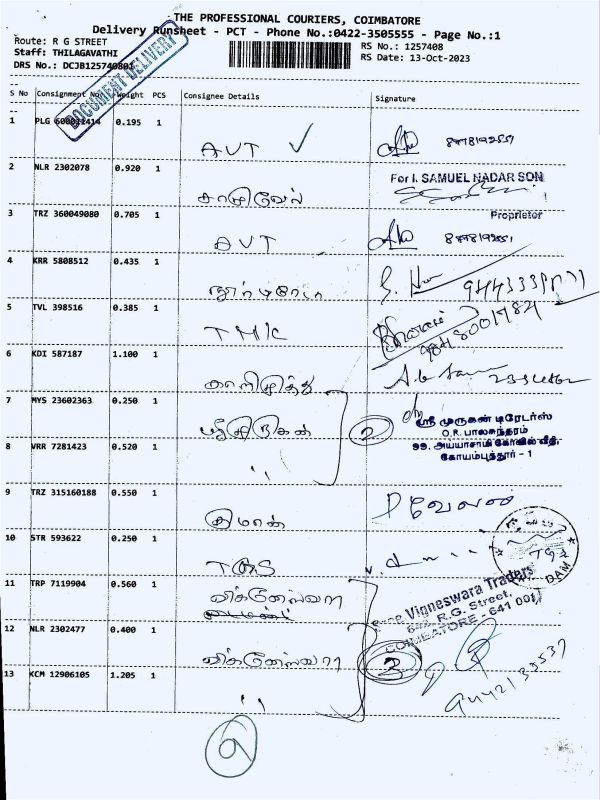 THE PROFESSIONAL COURIERS, COIMBATORE
Delivery Runsheet - PCT - Phone No.:0422-3505555 - Page No.:1
Route: R G STREET
Staff: THILAGAVATHI
DRS No.: DCJB125740801
RS No.: 1257408
RS Date: 13-Oct-2023
DOCUMENT DELIVERY
S No Consignment No Weight PCS Consignee Details Signature
1 PLG 600021414 0.195 1 AVT
2 NLR 2302078 0.920 1 For I. SAMUEL NADAR SON
Proprietor
3 TRZ 360049080 0.705 1 AVT
4 KRR 5808512 0.435 1
5 TVL 398516 0.385 1 TMC
6 KDI 587187 1.100 1 காளிமுத்து
7 MYS 23602363 0.250 1 ஸ்ரீமுருகன் 2
ஸ்ரீ முருகன் டிரேடர்ஸ்
O.R. பாலசுந்தரம்
99. அய்யாசாமி கோவில் வீதி,
கோயம்புத்தூர் - 1
8 VRR 7281423 0.520 1 "
9 TRZ 315160188 0.550 1 வேலன்
10 STR 593622 0.250 1
11 TRP 7119904 0.560 1 விக்னேஸ்வரா
Vinneswara Traders
R.G. Street,
COIMBATORE - 641 001
12 NLR 2302477 0.400 1 விக்னேஸ்வரா 3
13 KCM 12906105 1.205 1 "